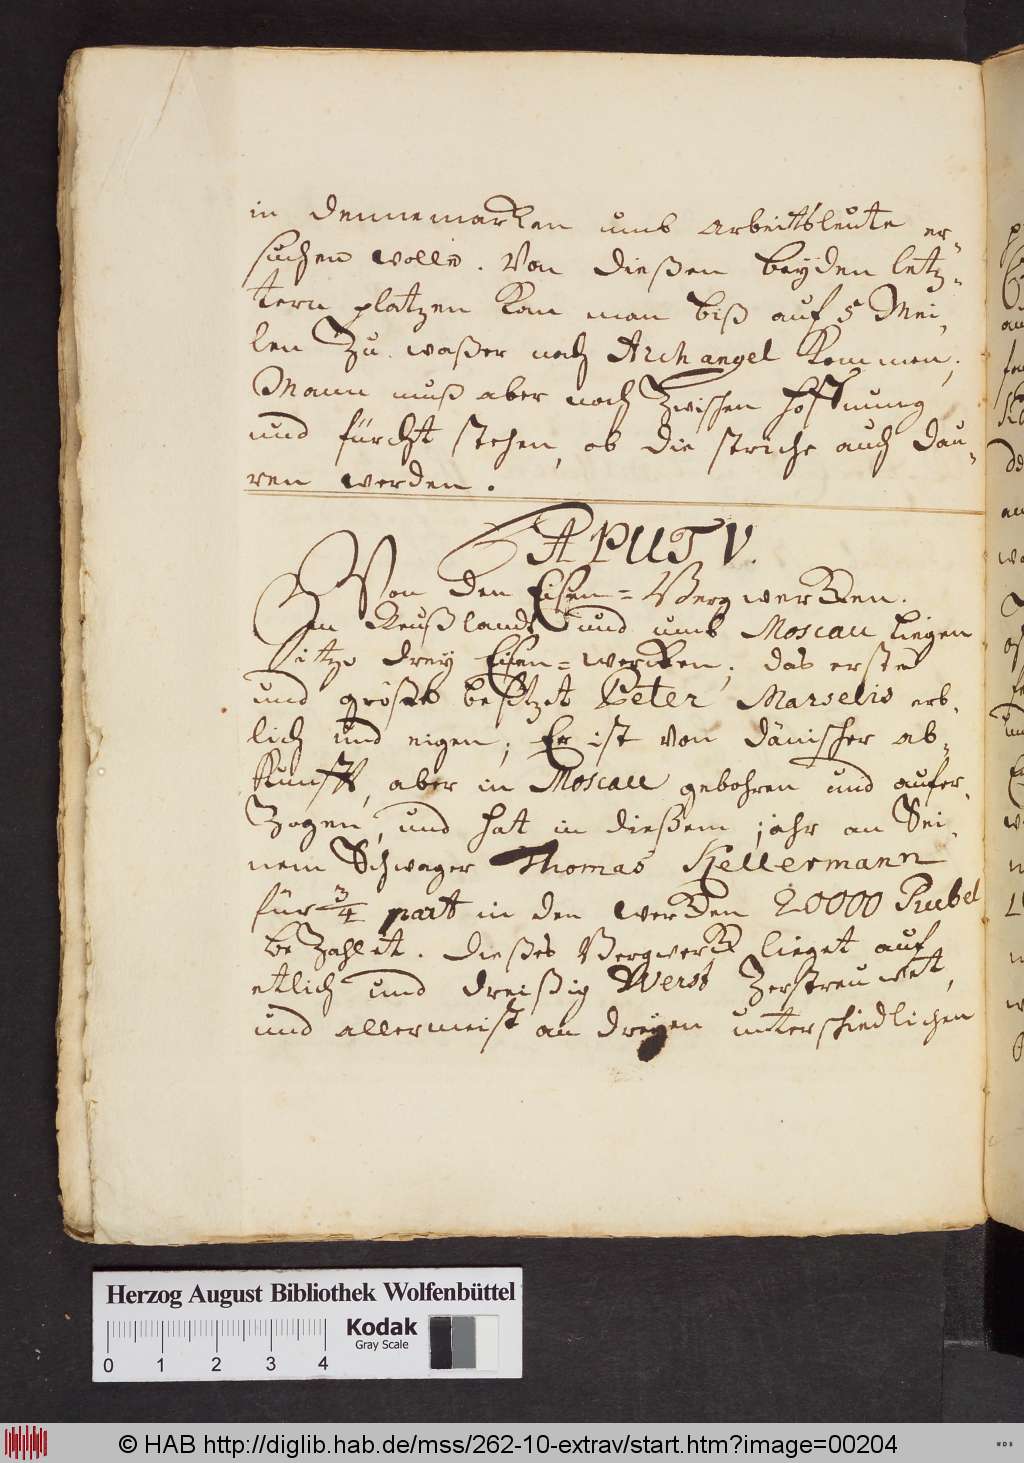 in Dennemarken umb arbeitsleute er-
suchen wolle. Von dießen beyden letz-
tern platzen kan man biß auf 5 Mei-
len Zu waßer nach Archangel kommen;
Mann muß aber noch Zwischen hoffnung
und fürcht stehen, ob die striche auch dau-
ren werden.
CAPUT V.
Von den Eisen-Bergwercken.
In Reußlandt und umb Moscau liegen
itzo drey Eisen-wercken; das erste
und gröste besitzet Peter Marselis erb-
lich und eigen; Er ist von dänischer ab-
kunfft, aber in Moscau gebohren und aufer-
Zogen, und hat in dießem jahr an Sei-
nem Schwager Thomas Kellermann
für 3/4 part in den wercken 20000 Rubel
beZahlet. dießes Bergwerck lieget auf
etlich und dreißig Werst Zerstreuwet,
und allermeist an dreyen unterschiedlichen
Herzog August Bibliothek Wolfenbüttel
Kodak
Gray Scale
0 1 2 3 4
© HAB http://diglib.hab.de/mss/262-10-extrav/start.htm?image=00204